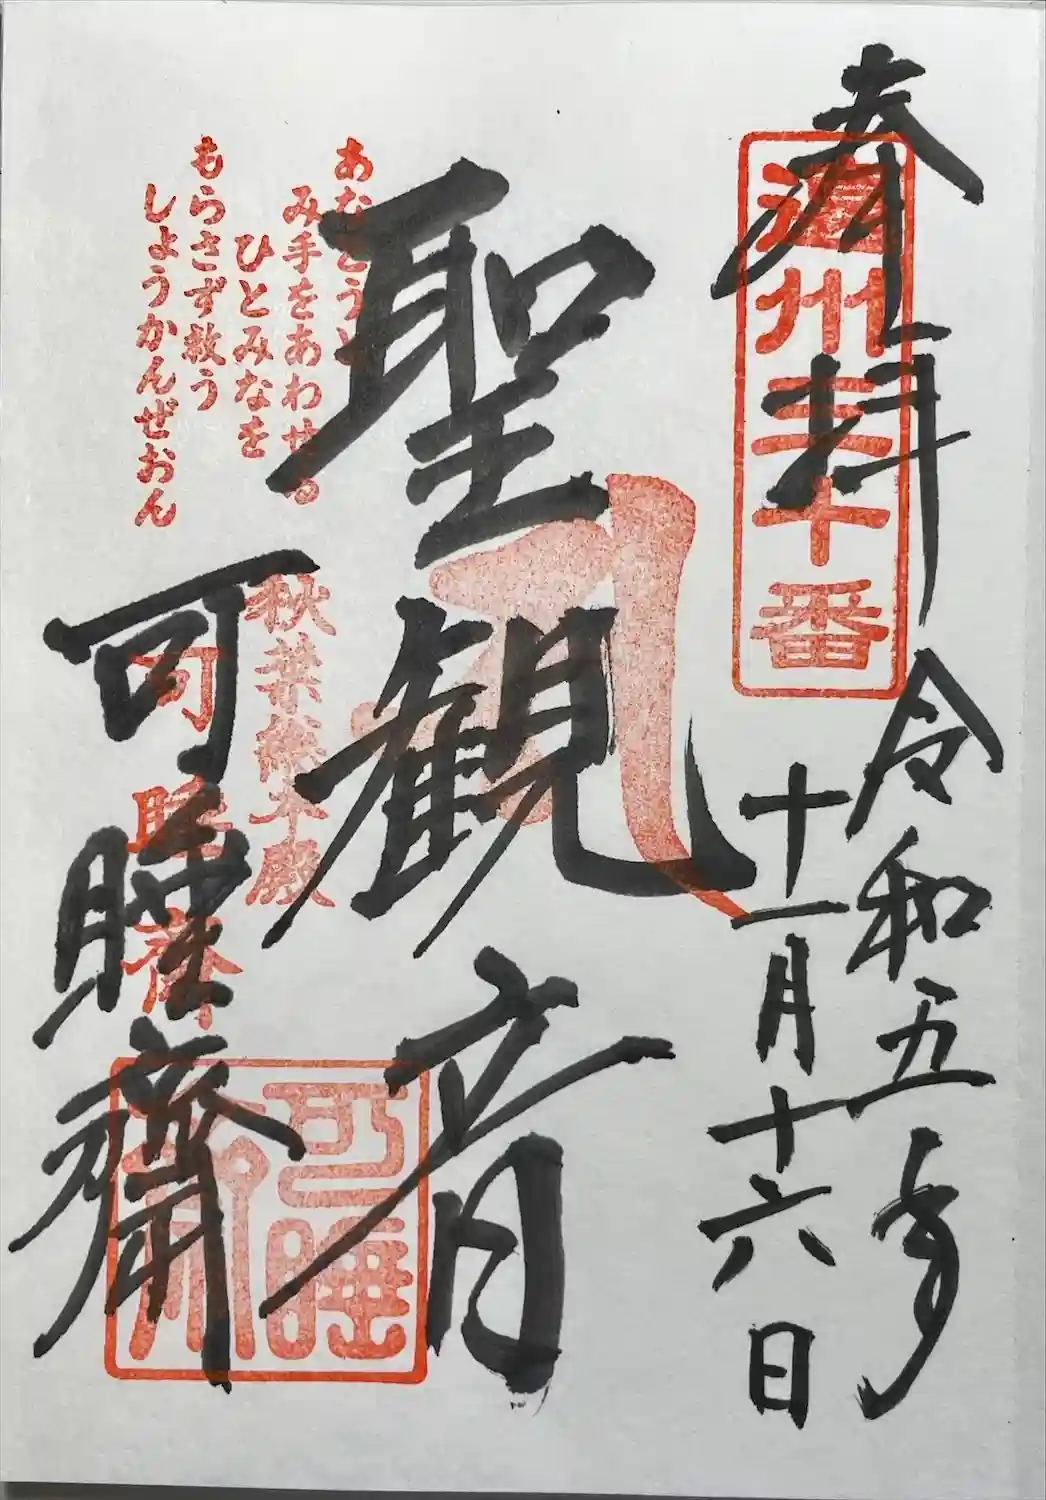 奉拝
遠州三十三番
令和五年
十一月十六日
聖観音
あなとうと
み手をあわせる
ひとみなを
もらさず救う
しょうかんぜおん
秋葉総本殿
可睡斎
可睡齋
可睡